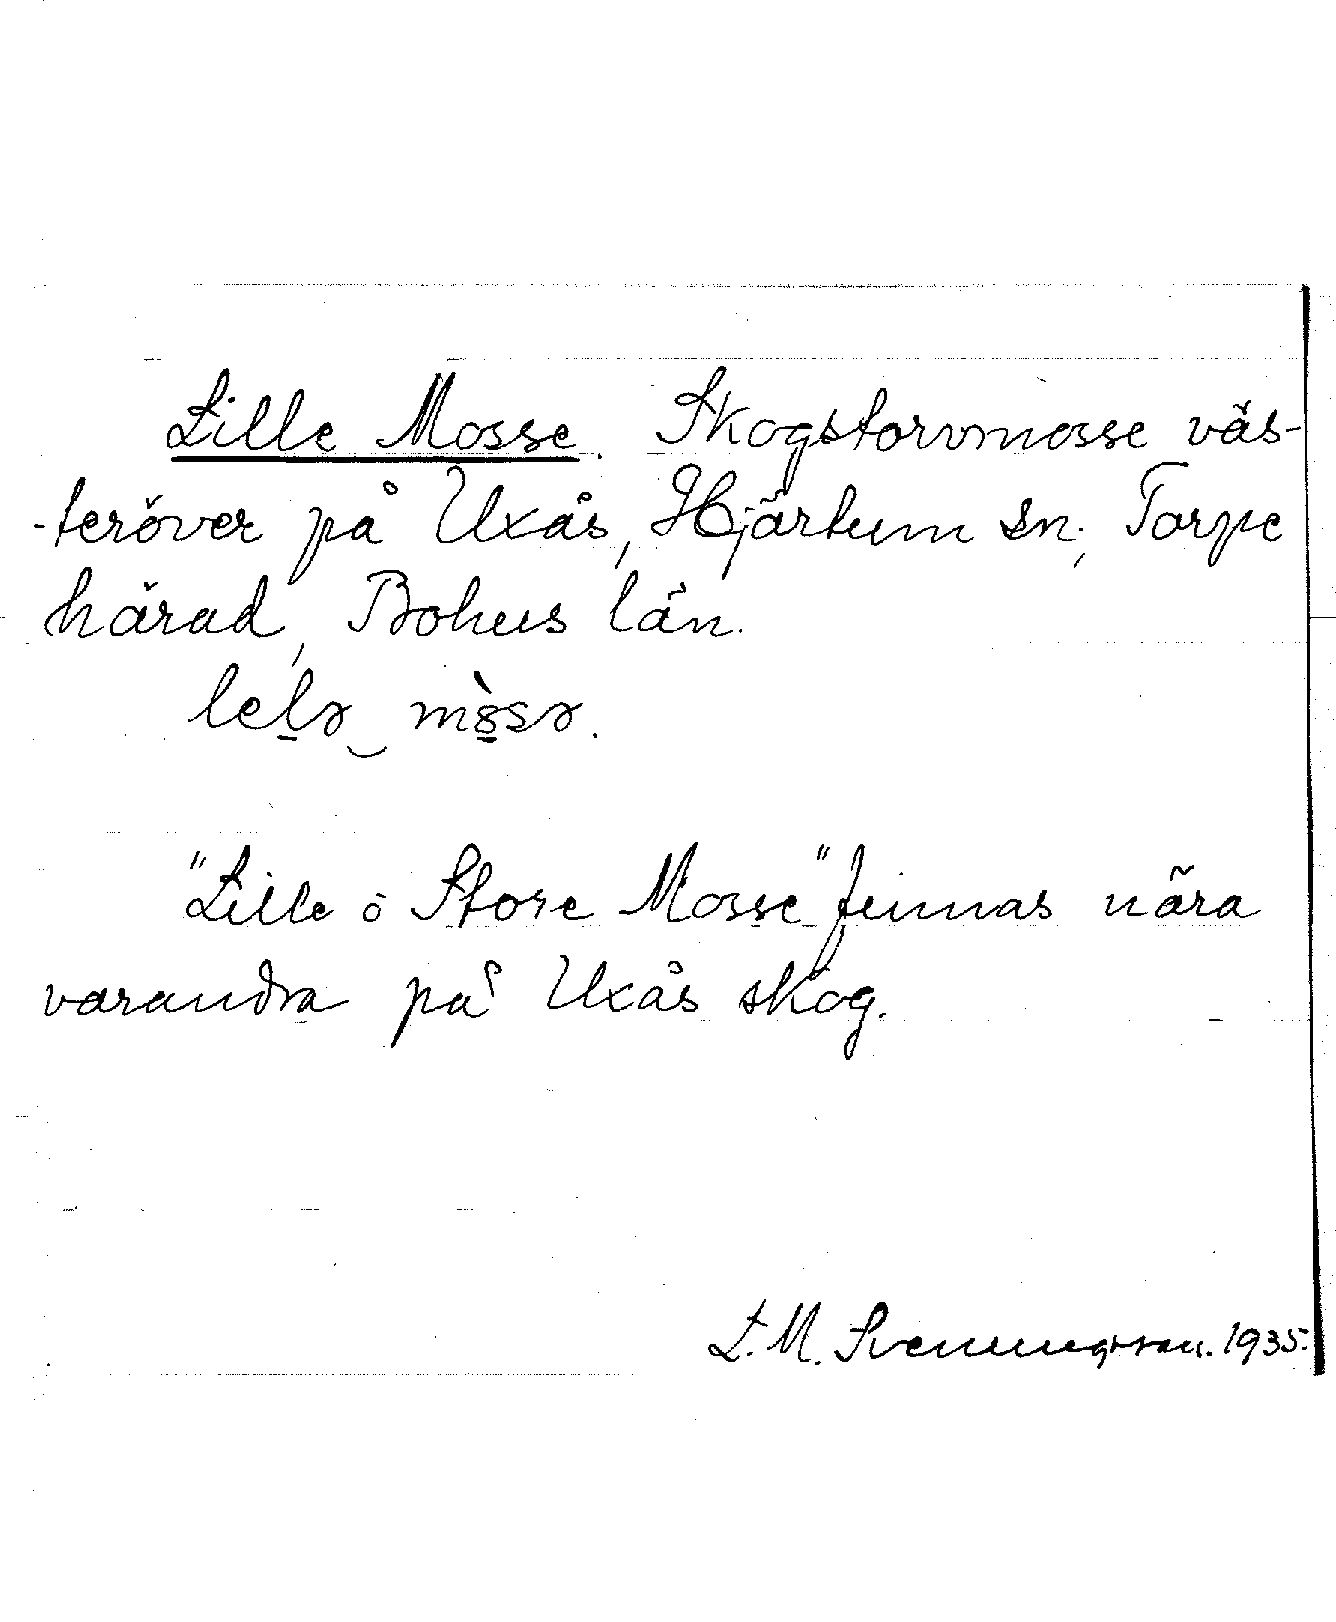 Lille Mosse. Skogstorvmosse väs-
-teröver på Uxås, Hjärtum sn; Torpe
härad, Bohus län.
lelə mòsə.
"Lille ö Store Mosse" finnas nära
varandra på Uxås skog.
L. M. Svenungsson. 1935.